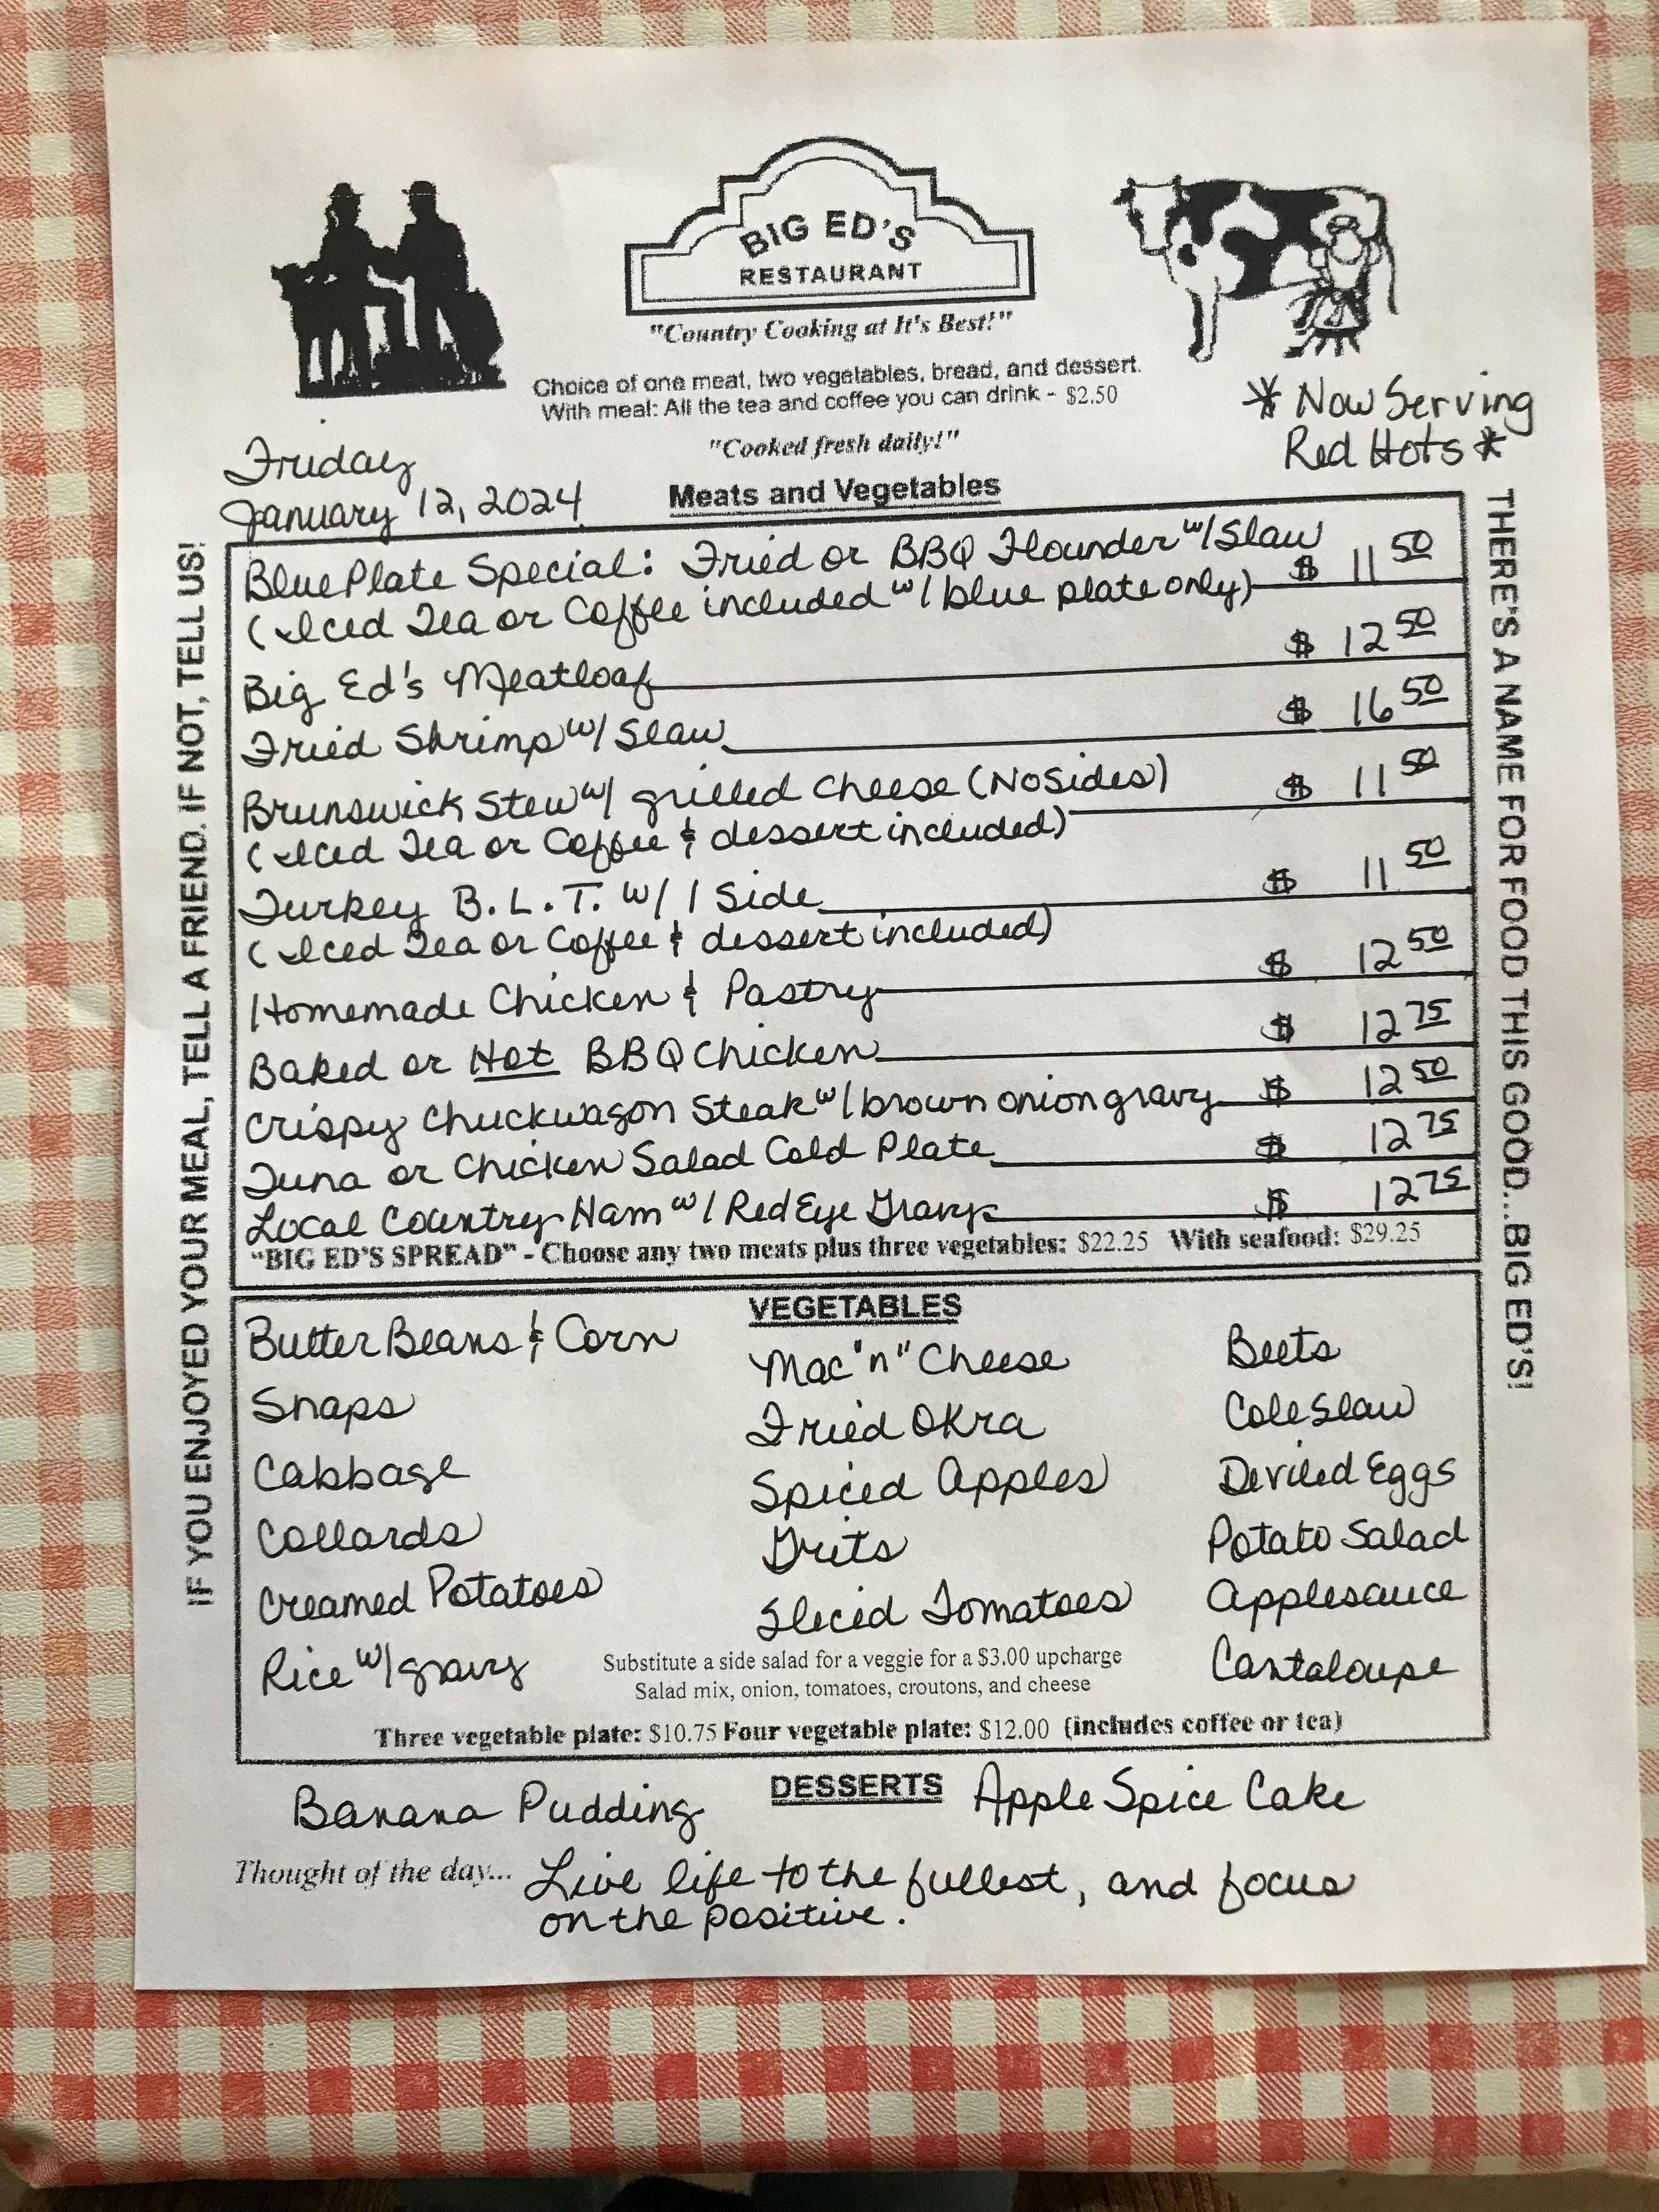 BIG ED'S
RESTAURANT
"Country Cooking at It's Best!"
Choice of one meat, two vegetables, bread, and dessert.
With meal: All the tea and coffee you can drink - $2.50
"Cooked fresh daily!"
* Now Serving
Red Hots *
Friday
January 12, 2024
Meats and Vegetables
Blue Plate Special: Fried or BBQ Flounder w/ Slaw
(Iced Tea or Coffee included w/ blue plate only) $ 11 50
Big Ed's Meatloaf $ 12 50
Fried Shrimp w/ Slaw $ 16 50
Brunswick Stew w/ grilled cheese (No Sides) $ 11 50
(Iced Tea or Coffee & dessert included)
Turkey B.L.T. w/ 1 Side $ 11 50
(Iced Tea or Coffee & dessert included)
Homemade Chicken & Pastry $ 12 50
Baked or Hot BBQ Chicken $ 12 75
Crispy Chuckwagon Steak w/ brown onion gravy $ 12 50
Tuna or Chicken Salad Cold Plate $ 12 75
Local Country Ham w/ Red Eye Gravy $ 12 75
"BIG ED'S SPREAD" - Choose any two meats plus three vegetables: $22.25 With seafood: $29.25
VEGETABLES
Butter Beans & Corn
Snaps
Cabbage
Collards
Creamed Potatoes
Rice w/ gravy
Mac "n" Cheese
Fried Okra
Spiced Apples
Grits
Sliced Tomatoes
Beets
Cole Slaw
Deviled Eggs
Potato Salad
Applesauce
Cantaloupe
Substitute a side salad for a veggie for a $3.00 upcharge
Salad mix, onion, tomatoes, croutons, and cheese
Three vegetable plate: $10.75 Four vegetable plate: $12.00 (includes coffee or tea)
DESSERTS
Banana Pudding
Apple Spice Cake
Thought of the day... Live life to the fullest, and focus
on the positive.
IF YOU ENJOYED YOUR MEAL, TELL A FRIEND. IF NOT, TELL US!
THERE'S A NAME FOR FOOD THIS GOOD...BIG ED'S!